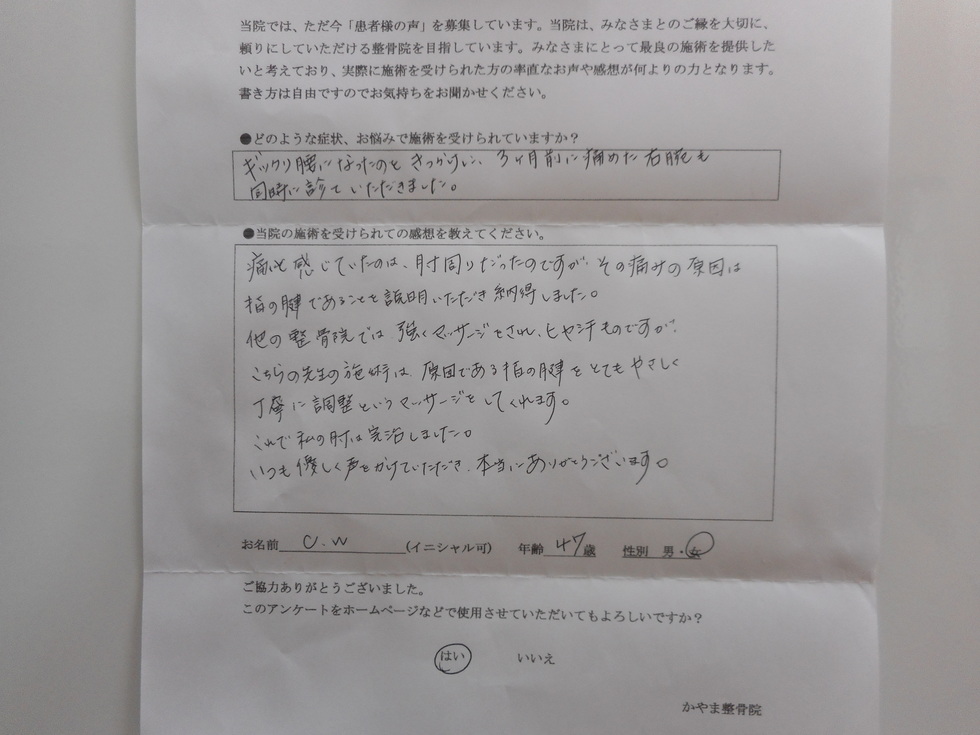 当院では、ただ今「患者様の声」を募集しています。当院は、みなさまとのご縁を大切に、
頼りにしていただける整骨院を目指しています。みなさまにとって最良の施術を提供した
いと考えており、実際に施術を受けられた方の率直なお声や感想が何よりの力となります。
書き方は自由ですのでお気持ちをお聞かせください。
●どのような症状、お悩みで施術を受けられていますか？
ギックリ腰になったのをきっかけに、3ヶ月前に痛めた右腕も
同時に診ていただきました。
●当院の施術を受けられての感想を教えてください。
痛いと感じていたのは、肘周りだったのですが、その痛みの原因は
指の腱であることを説明いただき納得しました。
他の整骨院では強くマッサージをされ、ヒヤ汗ものですが、
こちらの先生の施術は、原因である指の腱をとてもやさしく
丁寧に調整というマッサージをしてくれます。
これで私の肘は完治しました。
いつも優しく声をかけていただき、本当にありがとうございます。
お名前 C.W (イニシャル可) 年齢 47 歳 性別 男・女
ご協力ありがとうございました。
このアンケートをホームページなどで使用させていただいてもよろしいですか？
はい いいえ
かやま整骨院